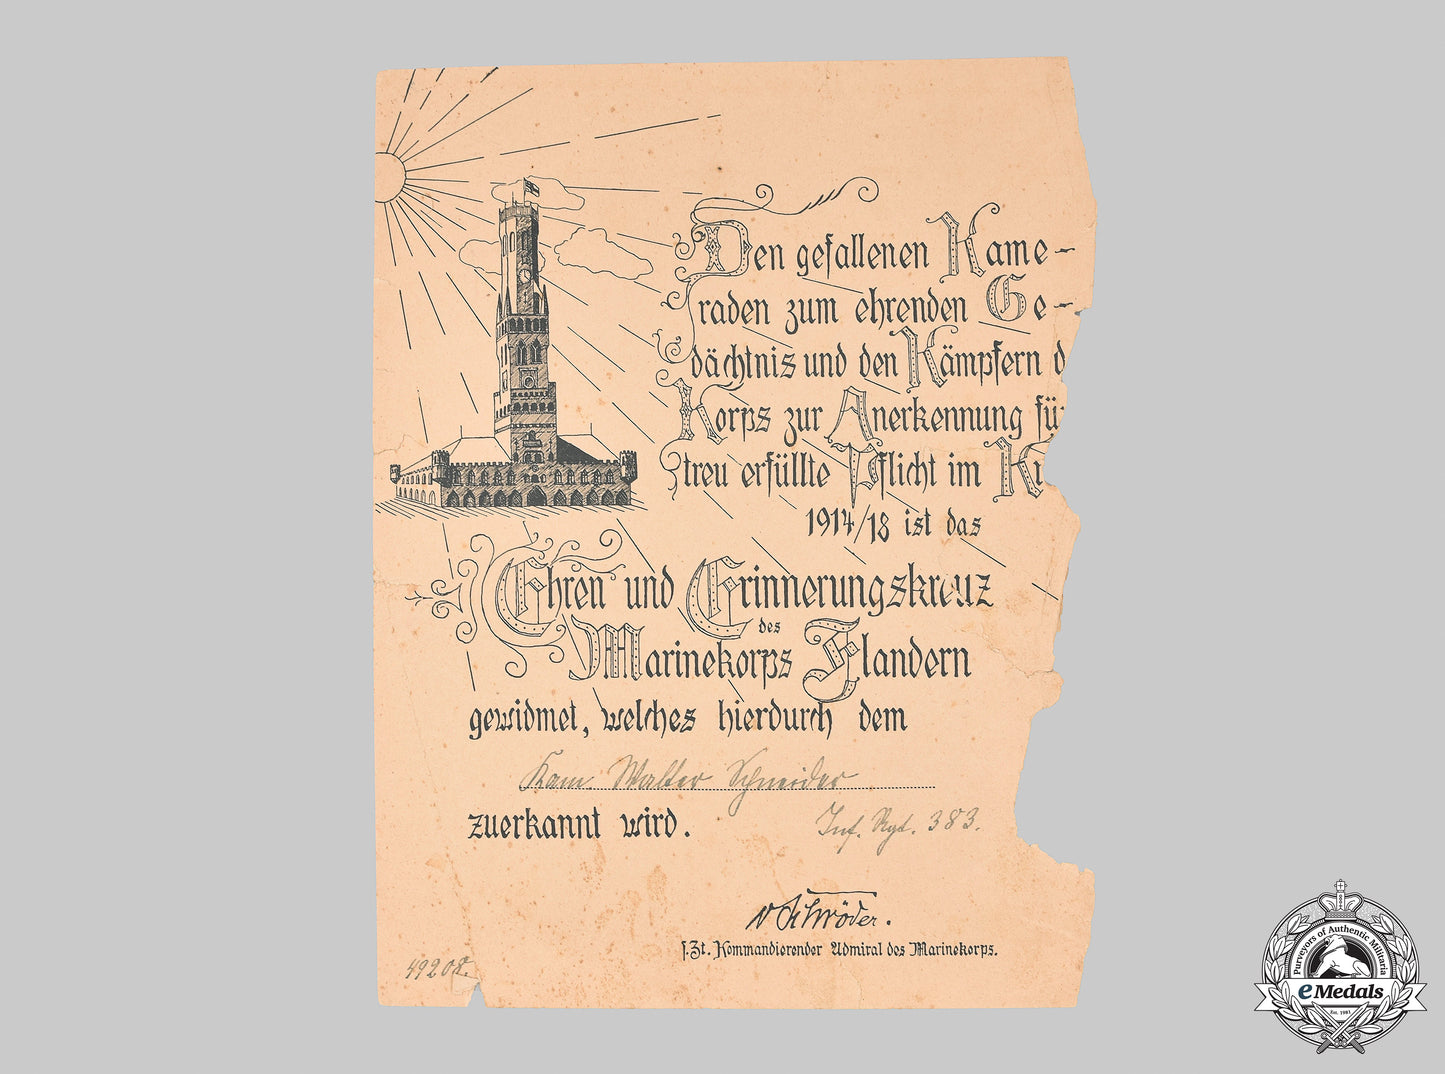 Den gefallenen Kame-
raden zum ehrenden Ge-
dächtnis und den Kämpfern d
Korps zur Anerkennung fü
treu erfüllte Pflicht im K
1914/18 ist das
Ehren und Erinnerungskreuz
des
Marinekorps Flandern
gewidmet, welches hierdurch dem
Kam. Walter Schneider
zuerkannt wird.
Inf. Rgt. 383.
v Schröder.
s. Zt. Kommandierender Admiral des Marinekorps.
49208.
Purveyors of Authentic Militaria
eMedals
Est. 1981